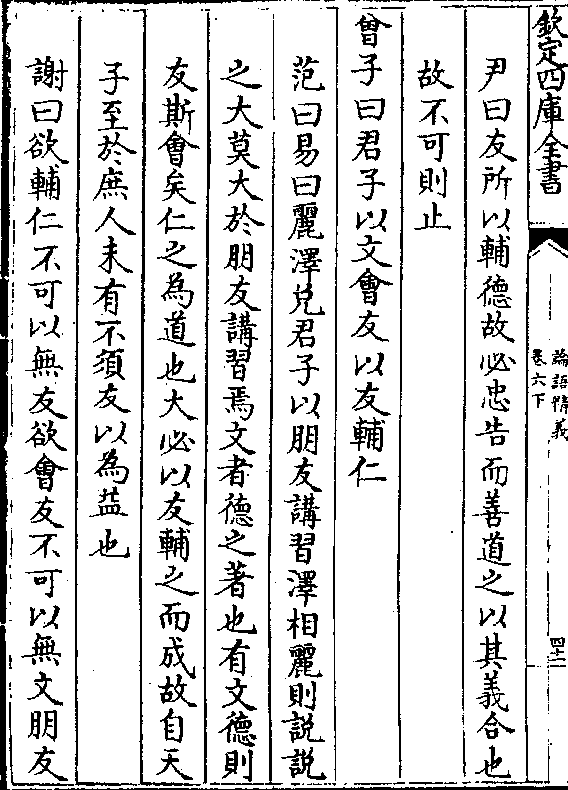 欽定四庫全書
論語精義
卷六下
四十二
尹曰友所以輔德故必忠告而善道之以其義合也
故不可則止
曾子曰君子以文會友以友輔仁
范曰易曰麗澤兌君子以朋友講習澤相麗則說說
之大莫大於朋友講習焉文者德之著也有文德則
友斯會矣仁之為道也大必以友輔之而成故自天
子至於庶人未有不須友以為益也
謝曰欲輔仁不可以無友欲會友不可以無文朋友